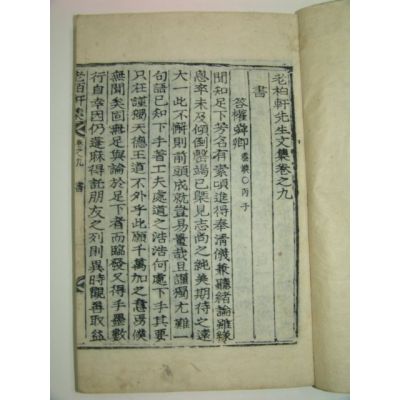 老柏軒先生文集卷之九
書
答權舜卿 載奎○丙子
聞知足下芳名有素頃進得奉清儀兼聽緒論雖緣
悤卒未及傾倒罄竭已槩見志尚之純美期待之遠
大一此不解則前頭成就豈易量哉且謹獨尤難一
句語已知下手著工夫處道之浩浩何處下手其要
只在謹獨天德王道不外乎此願千萬加之意勇俟
無聞矣固無足與論於足下者而臨發又得手墨數
行自幸因仍蓬麻得託朋友之列則異時觀善取益
老柏軒集
卷之九
書